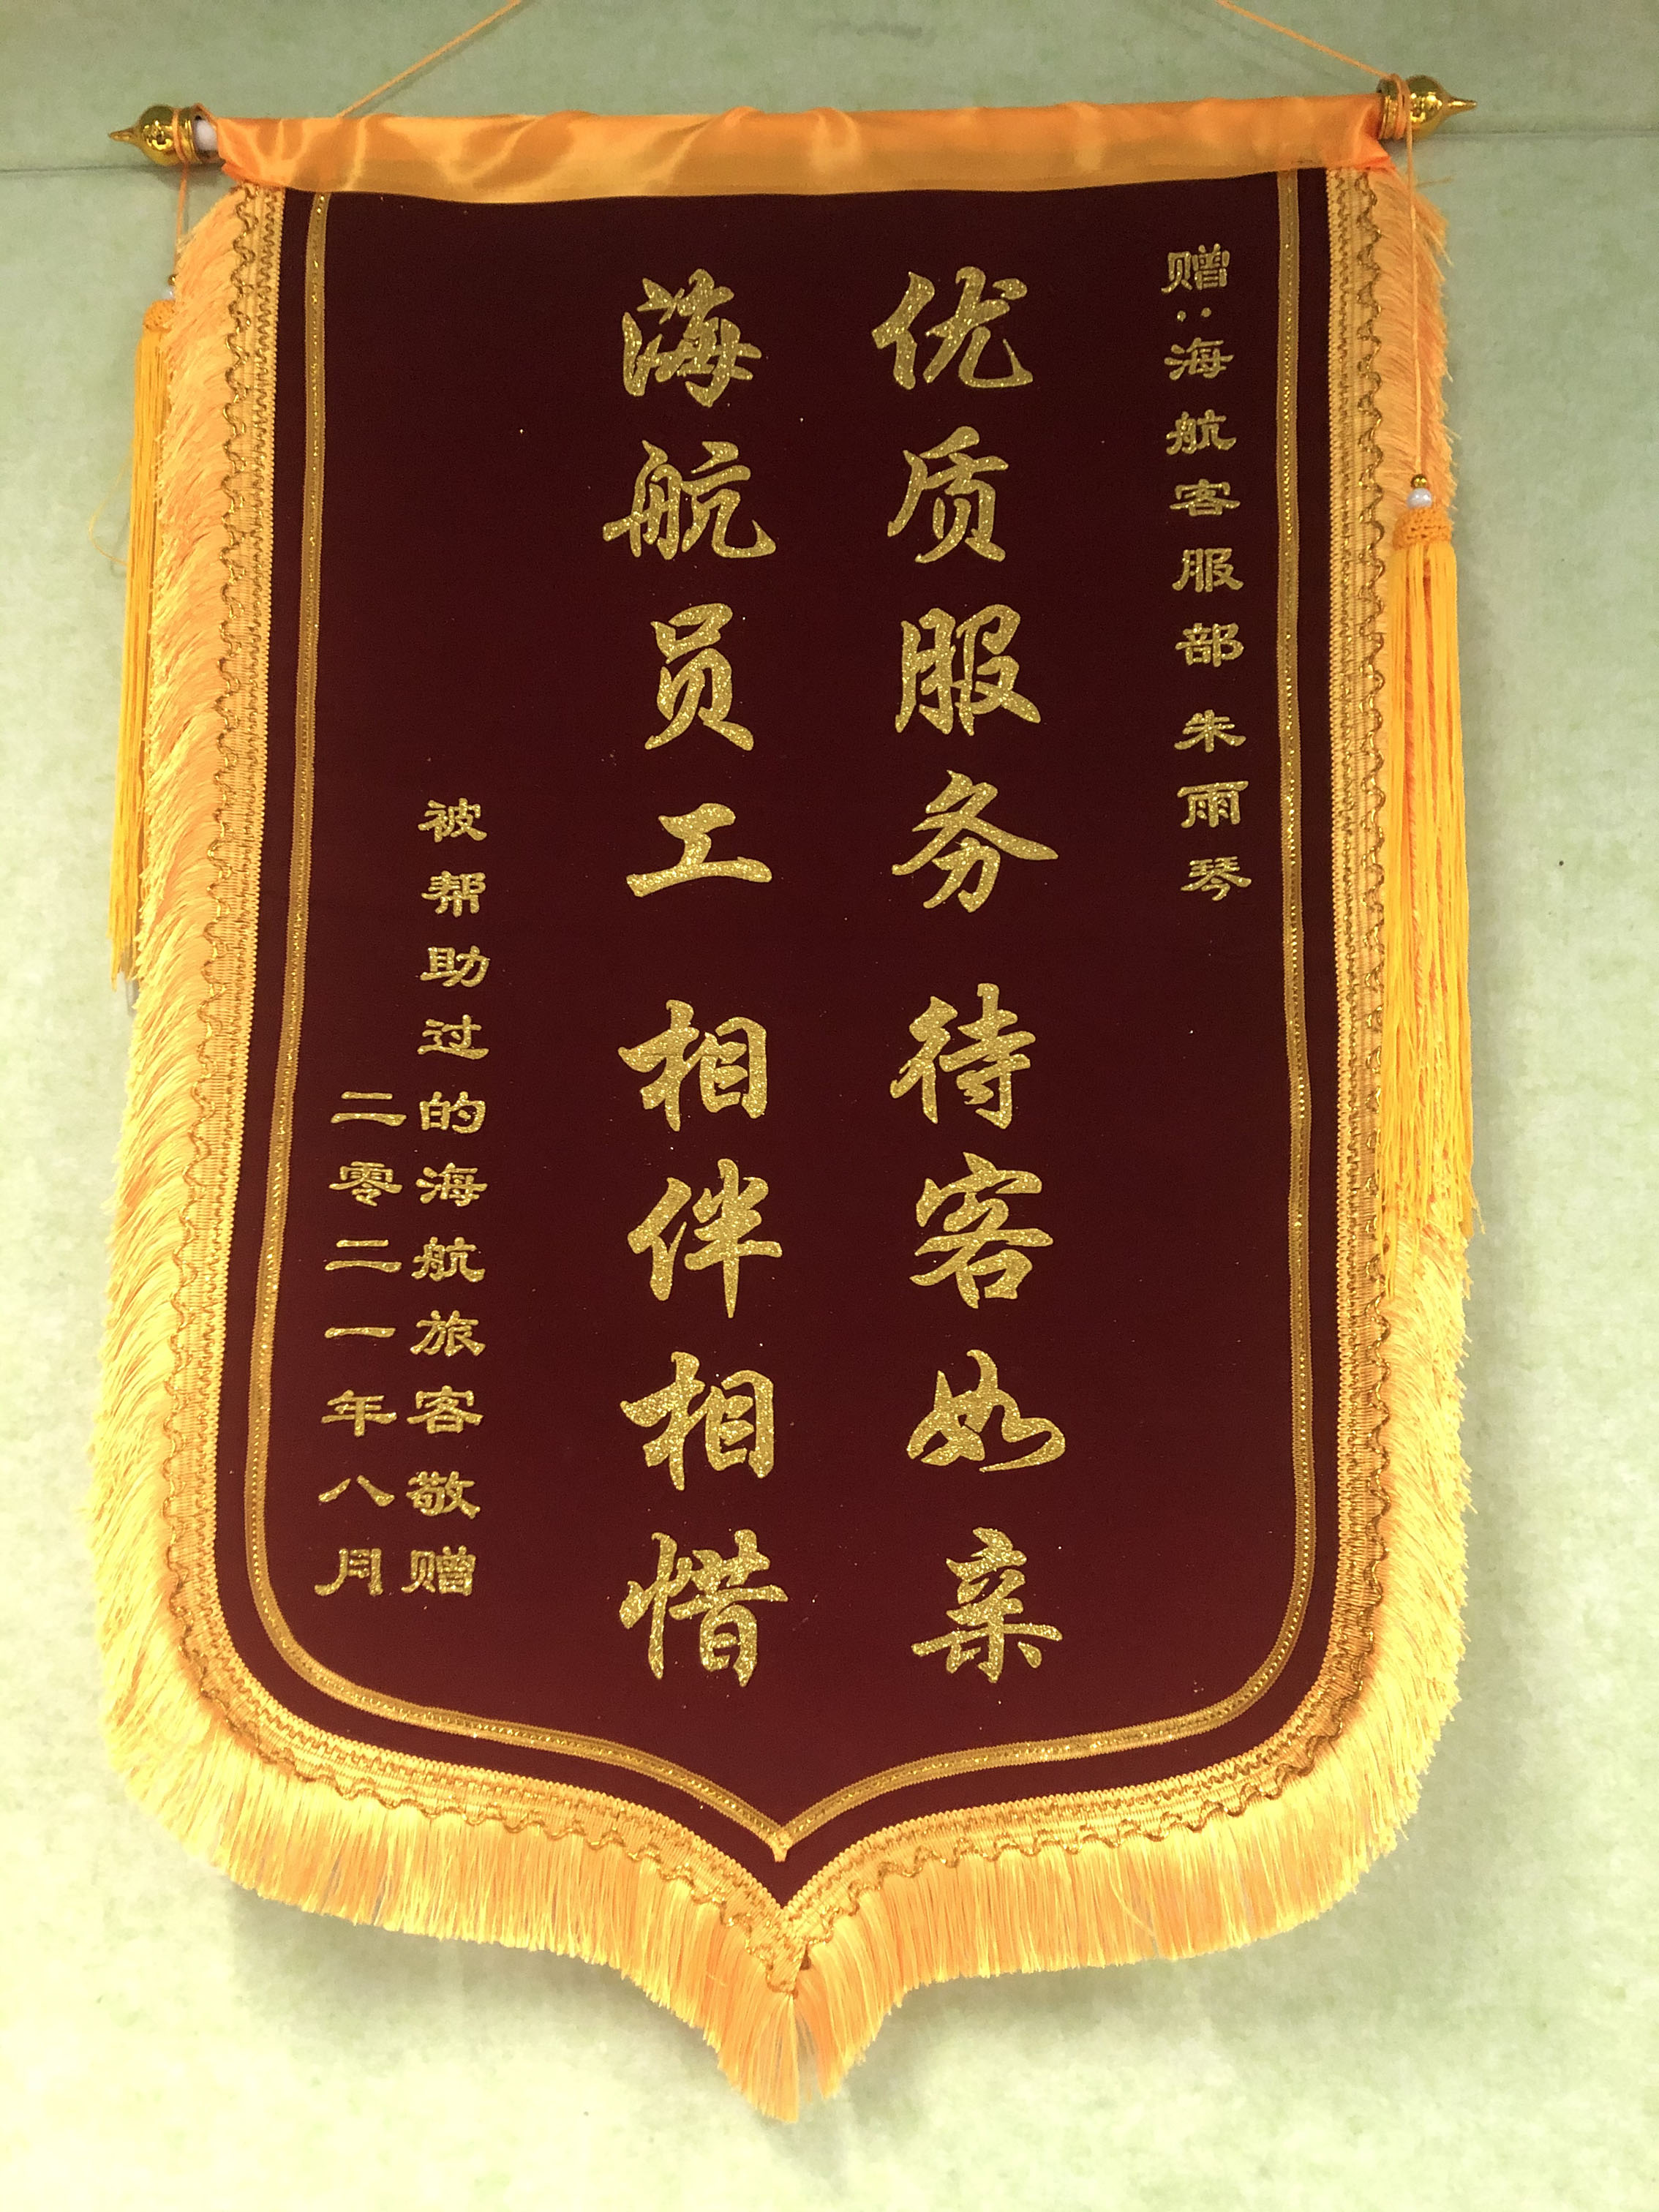 赠：海航客服部 朱雨琴
优质服务 待客如亲
海航员工 相伴相惜
被帮助过的海航旅客敬赠
二零二一年八月